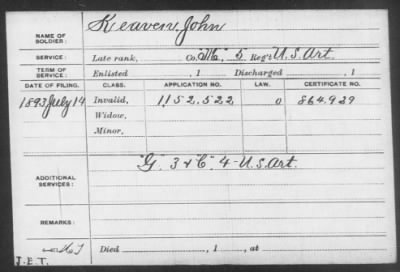 NAME OF SOLDIER: Keaven, John
SERVICE: Late rank, Co. "M", 5 Reg't U.S. Art.
TERM OF SERVICE: Enlisted , 1 Discharged , 1
DATE OF FILING. CLASS. APPLICATION NO. LAW. CERTIFICATE NO.
1893 July 14 Invalid, 1152.522 0 864.929
Widow,
Minor,
ADDITIONAL SERVICES: "G" 3 & "C" 4 - U.S. Art.
REMARKS:
Died , 1 , at
J.E.T.